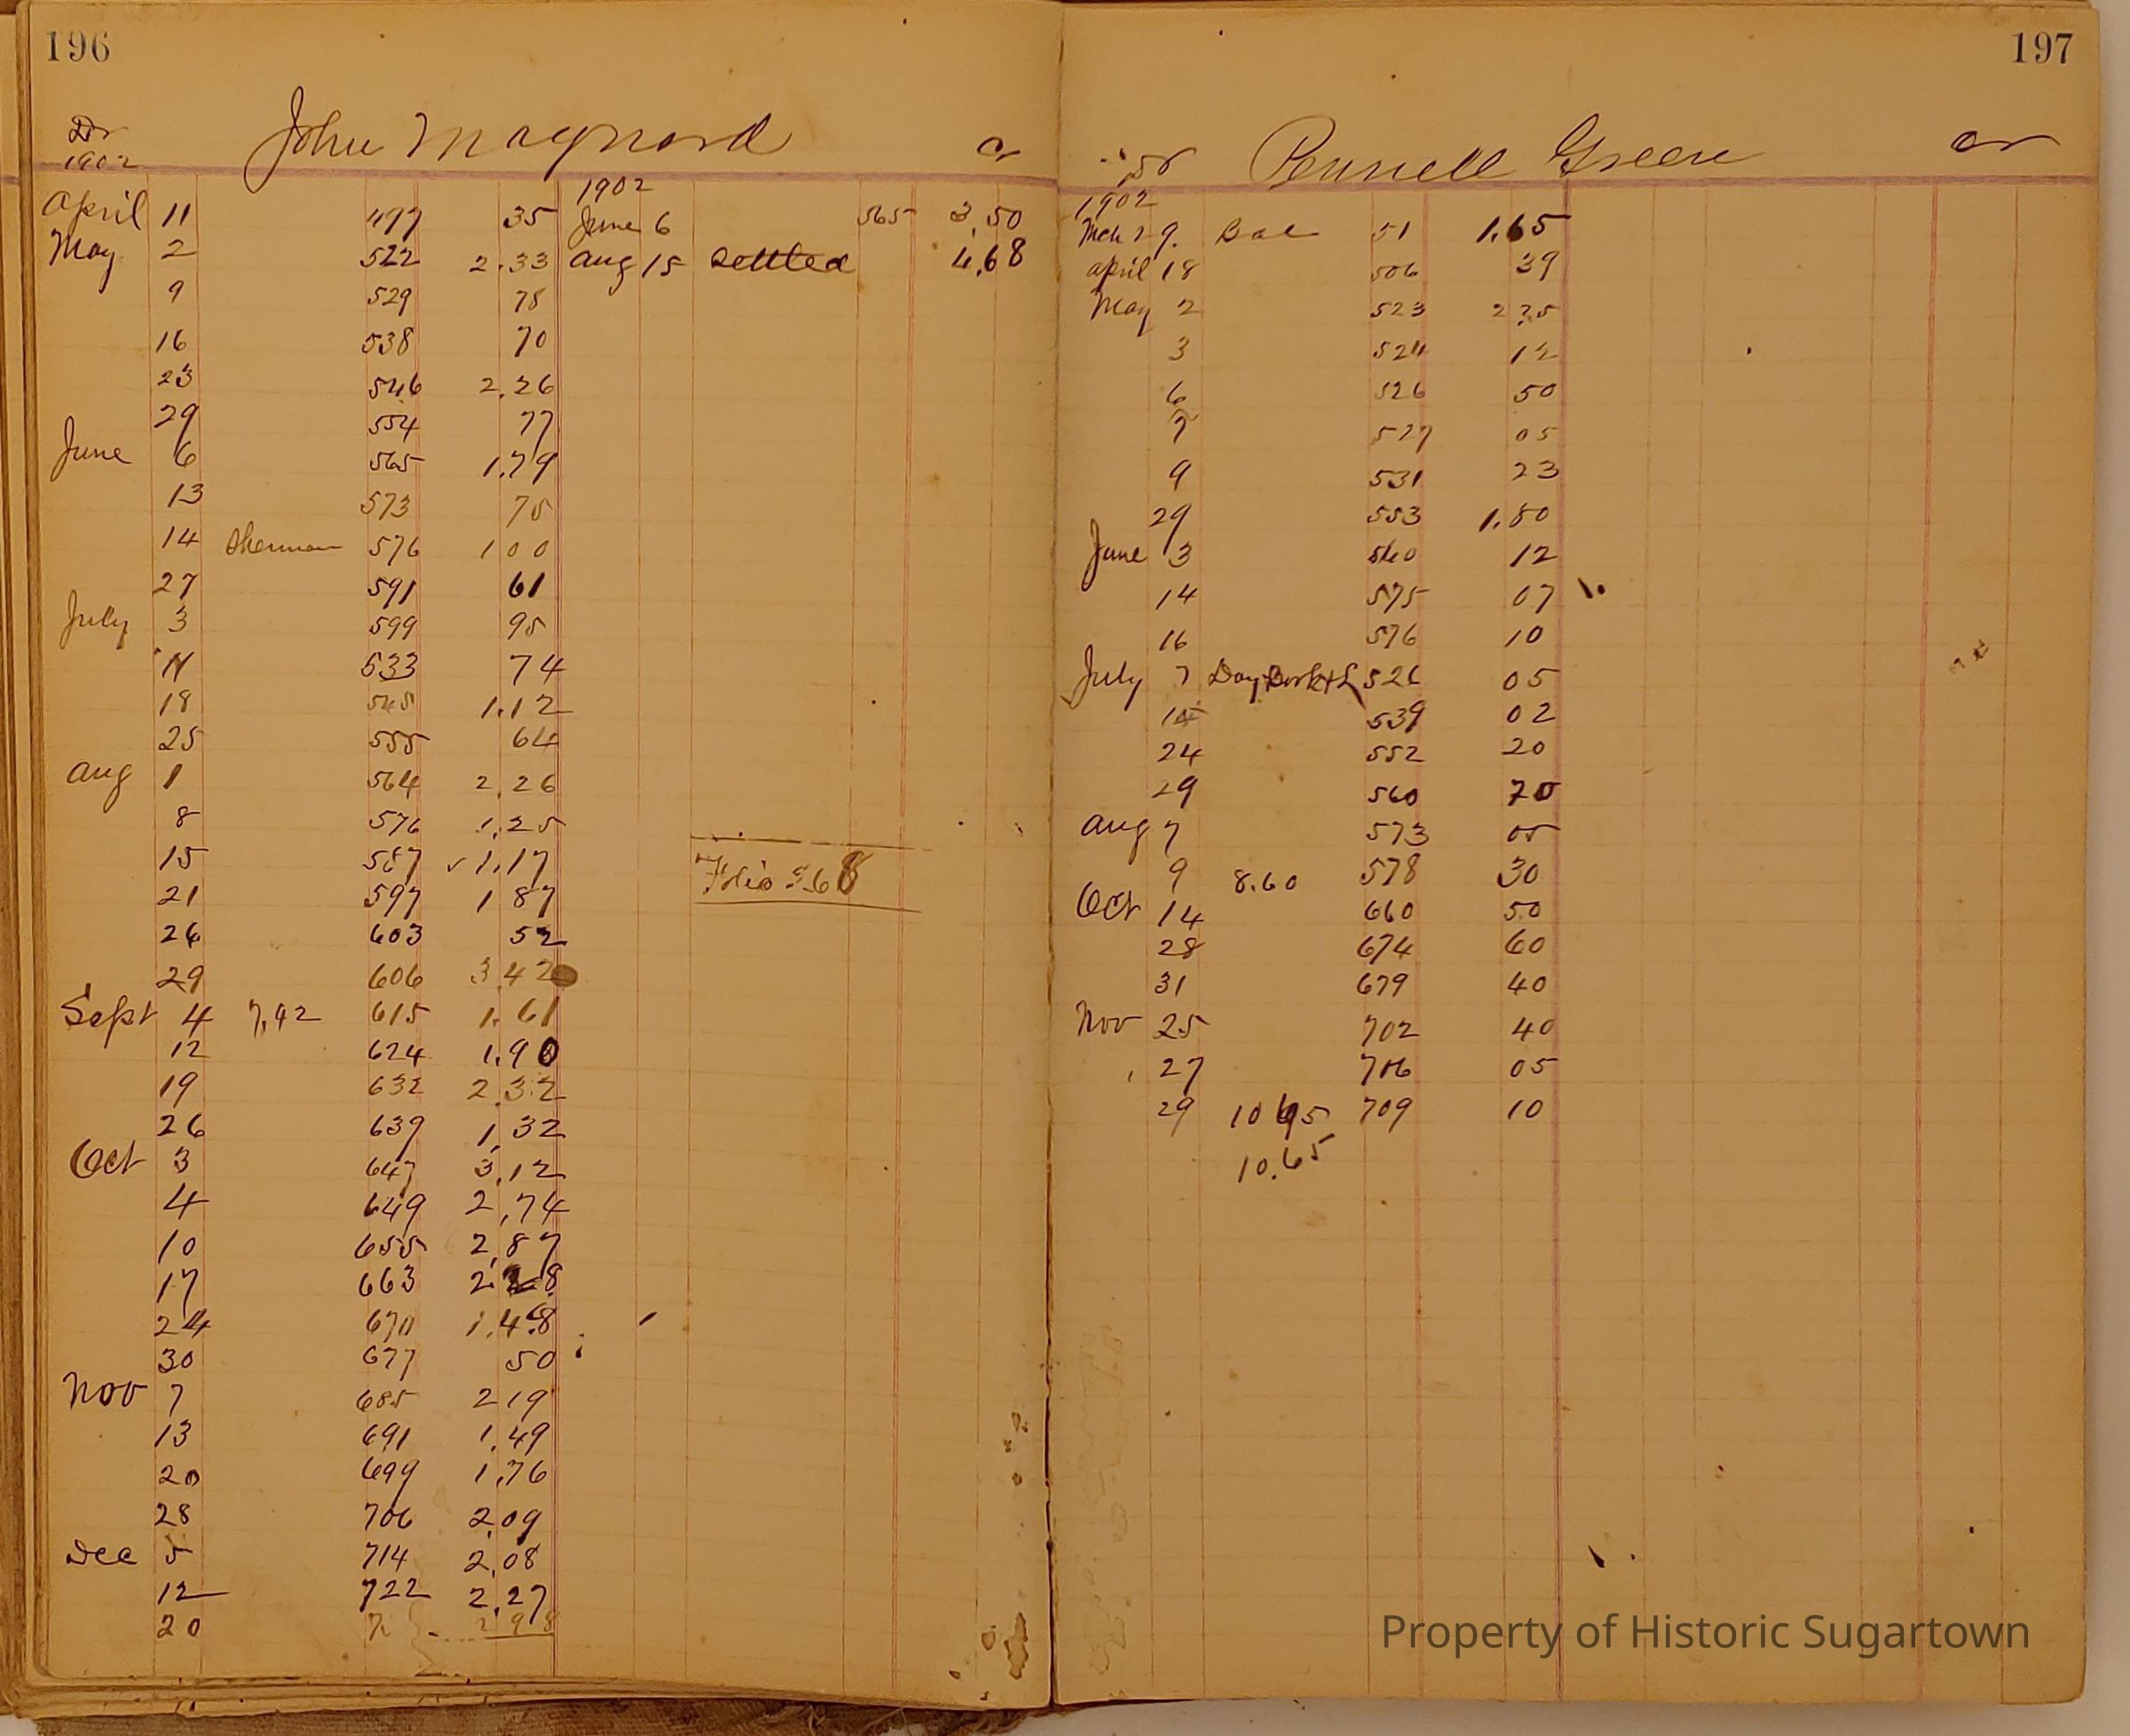 196
Dr John Maynard Cr
1902
1902
April 11 497 35 June 6 565 3,50
May 2 522 2.33 Aug 15 Settled 4,68
9 529 78
16 538 70
23 546 2.26
29 554 77
June 6 565 1.79
13 573 75
14 Sherman 576 1 00
27 591 61
July 3 599 95
11 533 74
18 545 1.12
25 555 64
Aug 1 564 2.26
8 576 1.25
15 587 1.17
Folio 568
21 597 1 87
26 603 52
29 606 3 42
Sept 4 7,92 615 1.61
12 624 1.90
19 632 2.32
26 639 1,32
Oct 3 647 3,12
4 649 2,74
10 655 2,87
17 663 2.28
24 670 1.48
30 677 50
Nov 7 685 2 19
13 691 1.49
20 699 1.76
28 706 2.09
Dec 5 714 2,08
12 722 2,27
20 2 98
197
Dr Pennell Green Cr
1902
Mch 29. Bal 51 1.65
April 18 506 39
May 2 523 2 25
3 524 12
6 526 50
7 527 05
9 531 23
29 553 1.80
June 3 560 12
14 575 07
16 576 10
July 7 Day Book + L 526 05
15 539 02
24 552 20
29 560 70
Aug 7 573 05
9 8.60 578 30
Oct 14 660 50
28 674 60
31 679 40
Nov 25 702 40
27 706 05
29 10 65 709 10
10.65
Property of Historic Sugartown